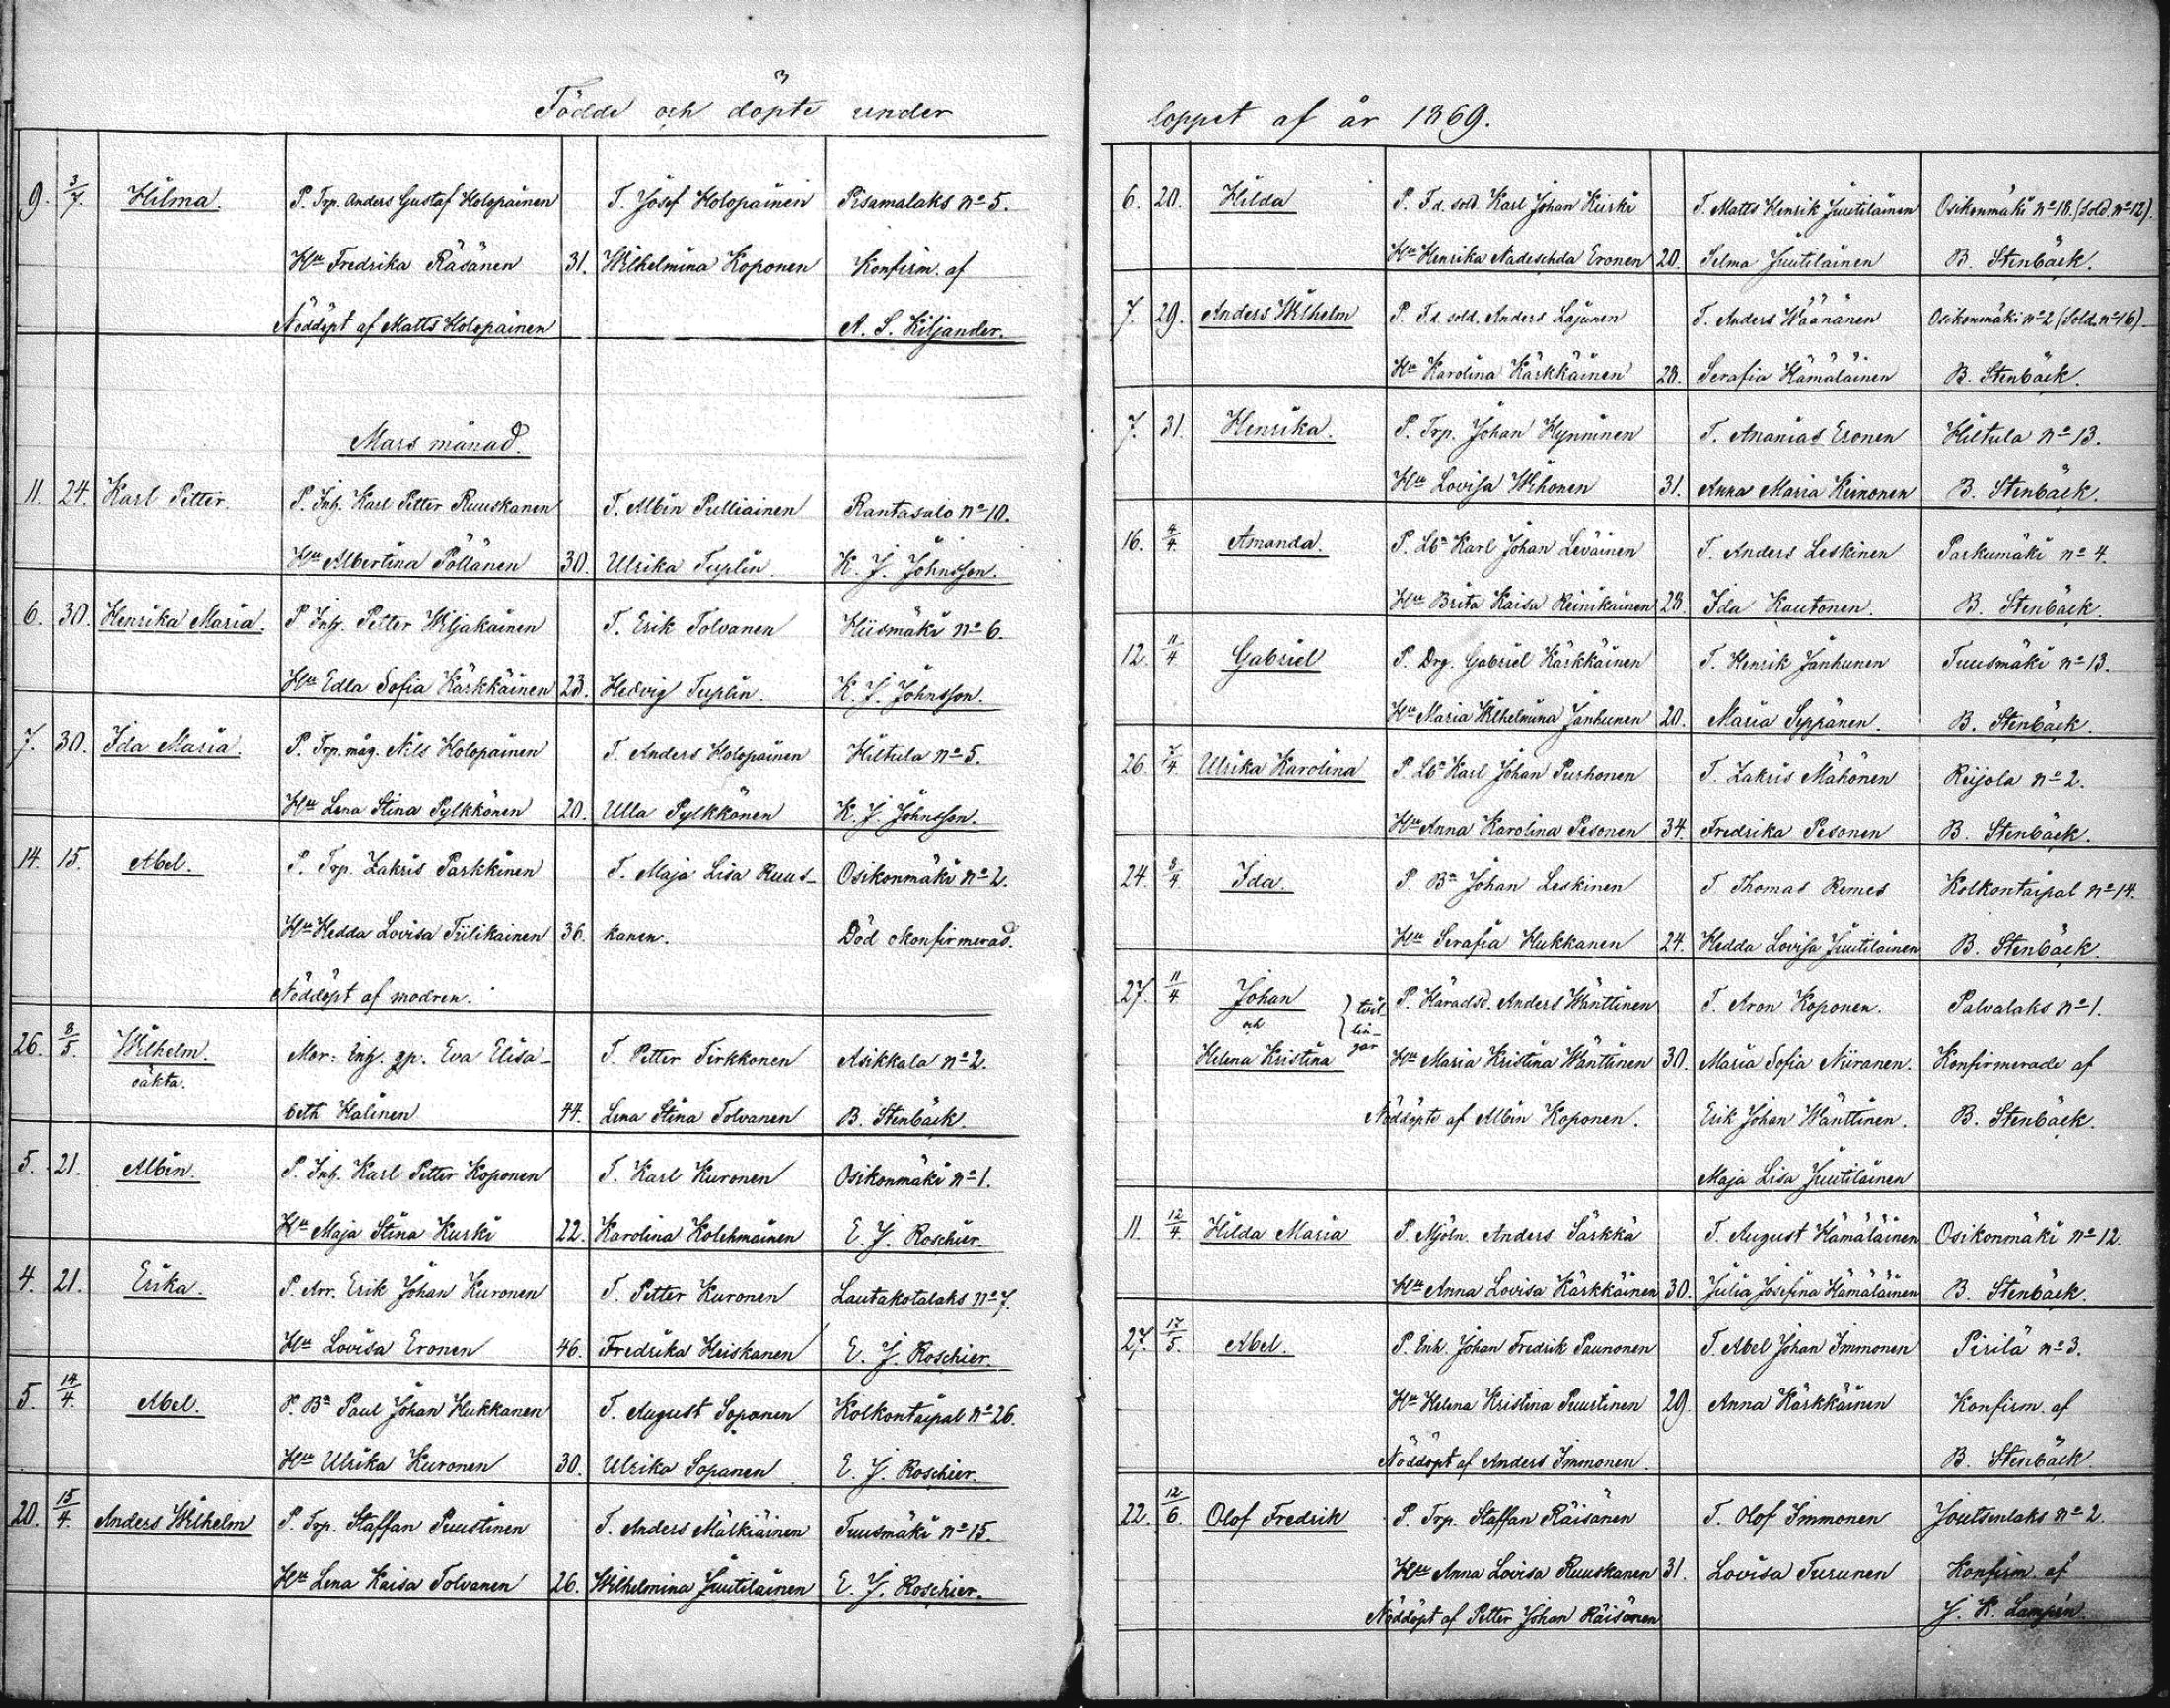 Födde och döpte under
9. 3/7. Hilma. P. Trp. Anders Gustaf Holopainen T. Josef Holopainen Pisamalaks nº 5.
Hu Fredrika Räsänen 31. Wilhelmina Koponen Konfirm. af
Nöddöpt af Matts Holopainen A. S. Kiljander.
Mars månad.
11. 24. Karl Petter. P. Inh. Karl Petter Ruuskanen T. Albin Pulliainen Rantasalo nº 10.
Hu Albertina Pöllänen 30. Ulrika Tuplin. K. J. Johnsson.
6. 30. Henrika Maria. P. Inh. Petter Wiljakainen T. Erik Tolvanen Kiismäki nº 6.
Hu Edla Sofia Kärkkäinen 23. Hedvig Tuplin. K. J. Johnsson.
7. 30. Ida Maria. P. Trp. måg. Nils Holopainen T. Anders Holopainen Hiltula nº 5.
Hu Lena Stina Pylkkönen 20. Ulla Pylkkönen K. J. Johnsson.
14. 15. Abel. P. Trp. Zakris Parkkinen T. Maja Lisa Ruus- Osikonmäki nº 2.
Hu Hedda Lovisa Tiilikainen 36. kanen. Död okonfirmerad.
Nöddöpt af modren.
26. 8/5. Wilhelm. Mor: Inh. gp. Eva Elisa- T. Petter Tirkkonen Asikkala nº 2.
oäkta. beth Halinen 44. Lena Stina Tolvanen B. Stenbäck.
5. 21. Albin. P. Inh. Karl Petter Koponen T. Karl Kuronen Osikonmäki nº 1.
Hu Maja Stina Kurki 22. Karolina Kolehmainen E. J. Roschier.
4. 21. Erika. P. Arr. Erik Johan Kuronen T. Petter Kuronen Lautakotalaks nº 7.
Hu Lovisa Eronen 46. Fredrika Heiskanen E. J. Roschier.
5. 14/4. Abel. P. Bn Paul Johan Hukkanen T. August Sopanen Kolkontaipal nº 26.
Hu Ulrika Kuronen 30. Ulrika Sopanen E. J. Roschier.
20. 15/4. Anders Wilhelm P. Trp. Staffan Puustinen T. Anders Mälkiäinen Tuusmäki nº 15.
Hu Lena Kaisa Tolvanen 26. Wilhelmina Juutilainen E. J. Roschier.
loppet af år 1869.
6. 20. Hilda P. Fd. sold. Karl Johan Kurki T. Matts Henrik Juutilainen Osikonmäki nº 18. (Sold. nº 12).
Hu Henrika Nadeschda Eronen 20. Selma Juutilainen B. Stenbäck.
7. 29. Anders Wilhelm P. Fd. sold. Anders Lajunen T. Anders Wäänänen Osikonmäki nº 2 (Sold. nº 16).
Hu Karolina Kärkkäinen 28. Serafia Hämäläinen B. Stenbäck.
7. 31. Henrika. P. Trp. Johan Hynninen T. Ananias Eronen Hiltula nº 13.
Hu Lovisa Wihonen 31. Anna Maria Keinonen B. Stenbäck.
16. 4/4. Amanda. P. Lbn Karl Johan Leväinen T. Anders Leskinen Parkumäki nº 4.
Hu Brita Kaisa Reinikainen 28. Ida Kautonen. B. Stenbäck.
12. 11/4 Gabriel P. Drg. Gabriel Kärkkäinen T. Henrik Janhunen Tuusmäki nº 13.
Hu Maria Wilhelmina Janhunen 20. Maria Seppänen. B. Stenbäck.
26. 7/4. Ulrika Karolina P. Lbn Karl Johan Purhonen T. Zakris Mähönen Reijola nº 2.
Hu Anna Karolina Pesonen 34. Fredrika Pesonen B. Stenbäck.
24. 8/4. Ida. P. Bn Johan Leskinen T. Thomas Remes Kolkontaipal nº 14.
Hu Serafia Hukkanen 24. Hedda Lovisa Juutilainen B. Stenbäck.
27. 11/4 Johan P. Häradsd. Anders Wänttinen T. Aron Koponen. Palvalaks nº 1.
och tvil-
lin-
gar
Helena Kristina Hu Maria Kristina Wänttinen 30. Maria Sofia Niiranen. Konfirmerade af
Nöddöpte af Albin Koponen. Erik Johan Wänttinen. B. Stenbäck.
Maja Lisa Juutilainen
11. 12/4 Hilda Maria P. Mjöln. Anders Särkkä T. August Hämäläinen Osikonmäki nº 12.
Hu Anna Lovisa Kärkkäinen 30. Julia Josefina Hämäläinen B. Stenbäck.
27. 17/5. Abel. P. Inh. Johan Fredrik Paunonen T. Abel Johan Immonen Pirilä nº 3.
Hu Helena Kristina Puustinen 29. Anna Kärkkäinen Konfirm. af
Nöddöpt af Anders Immonen. B. Stenbäck.
22. 12/6. Olof Fredrik P. Trp. Staffan Räisänen T. Olof Immonen Joutsenlaks nº 2.
Hu Anna Lovisa Ruuskanen 31. Lovisa Turunen Konfirm. af
Nöddöpt af Petter Johan Räisänen J. K. Lampén.